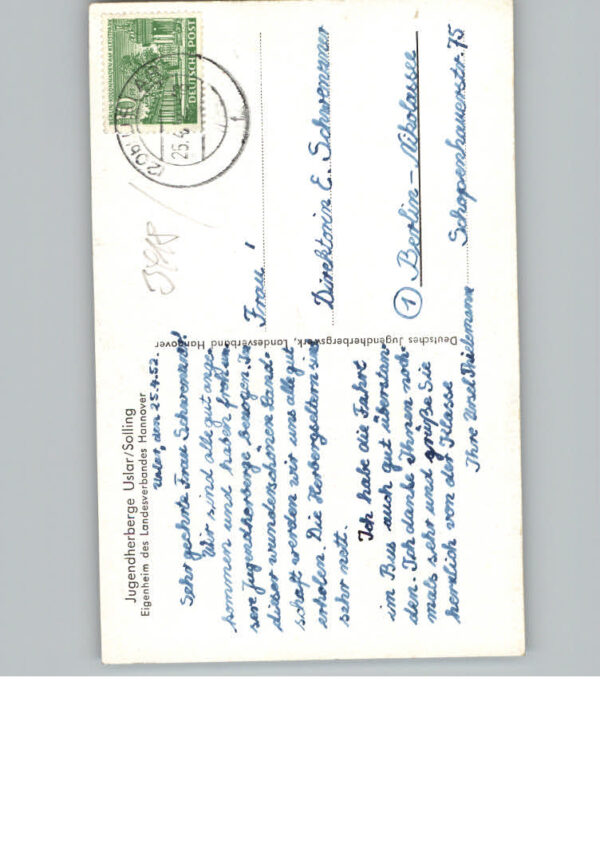 Jugendherberge Uslar/Solling
Eigenheim des Landesverbandes Hannover
Uslar, den 25.4.52.
Sehr geehrte Frau Schwenner!
Wir sind alle gut ange-
kommen und haben froh un-
sere Jugendherberge bezogen. In
dieser wunderschönen Land-
schaft werden wir uns alle gut
erholen. Die Herbergseltern sind
sehr nett.
Ich habe die Fahrt
im Bus auch gut überstan-
den. Ich danke Ihnen noch-
mals sehr und grüße Sie
herzlich von der Klasse
Ihre Ursel
Deutsches Jugendherbergswerk, Landesverband Hannover
DEUTSCHE POST
10
(20b)
25.4
Frau !
Direktorin E. Schwenner
1 Berlin-Nikolassee
Schopenhauerstr. 75